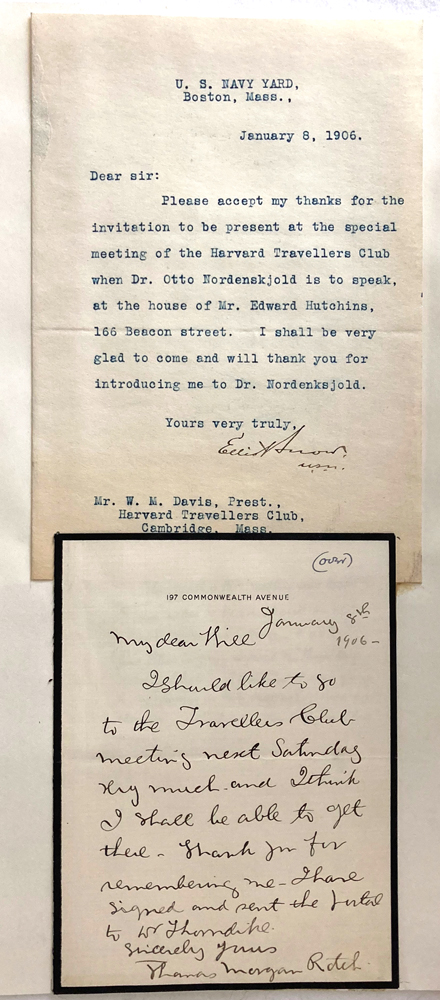 U. S. NAVY YARD,
Boston, Mass.,
January 8, 1906.
Dear sir:
Please accept my thanks for the
invitation to be present at the special
meeting of the Harvard Travellers Club
when Dr. Otto Nordenskjold is to speak,
at the house of Mr. Edward Hutchins,
166 Beacon street. I shall be very
glad to come and will thank you for
introducing me to Dr. Nordenksjold.
Yours very truly,
Elliot Snow.
usn.
Mr. W. M. Davis, Prest.,
Harvard Travellers Club,
Cambridge, Mass.
(over)
197 COMMONWEALTH AVENUE
January 8th
1906-
My dear Will
I should like to go
to the Travellers Club
meeting next Saturday
very much and I think
I shall be able to get
there - Thank you for
remembering me - I have
signed and sent the postal
to Dr Thorndike.
Sincerely yours
Thomas Morgan Rotch.